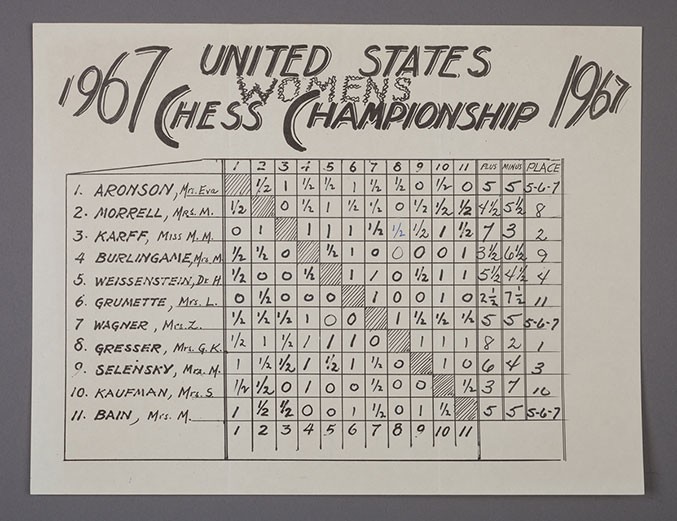 1967 UNITED STATES 1967
WOMENS
CHESS CHAMPIONSHIP
1 2 3 4 5 6 7 8 9 10 11 PLUS MINUS PLACE
1. ARONSON, Mrs. Eva 1/2 1 1/2 1/2 1 1/2 1/2 0 1/2 0 5 5 5-6-7
2. MORRELL, MRS. M. 1/2 0 1/2 1 1/2 1/2 0 1/2 1/2 1/2 4 1/2 5 1/2 8
3. KARFF, MISS M. M. 0 1 1 1 1 1/2 1/2 1/2 1 1/2 7 3 2
4 BURLINGAME, Mrs. M. 1/2 1/2 0 1/2 1 0 0 0 0 1 3 1/2 6 1/2 9
5. WEISSENSTEIN, Dr. H. 1/2 0 0 1/2 1 1 0 1/2 1 1 5 1/2 4 1/2 4
6. GRUMETTE, Mrs. L. 0 1/2 0 0 0 1 0 0 1 0 2 1/2 7 1/2 11
7 WAGNER, Mrs. Z. 1/2 1/2 1/2 1 0 0 1 1/2 1/2 1/2 5 5 5-6-7
8. GRESSER, Mrs. G. K. 1/2 1 1/2 1 1 1 0 1 1 1 8 2 1
9. SELENSKY, Mrs. M. 1 1/2 1/2 1 1/2 1 1/2 0 1 0 6 4 3
10. KAUFMAN, Mrs. S 1/2 1/2 0 1 0 0 1/2 0 0 1/2 3 7 10
11. BAIN, Mrs. M. 1 1/2 1/2 0 0 1 1/2 0 1 1/2 5 5 5-6-7
1 2 3 4 5 6 7 8 9 10 11